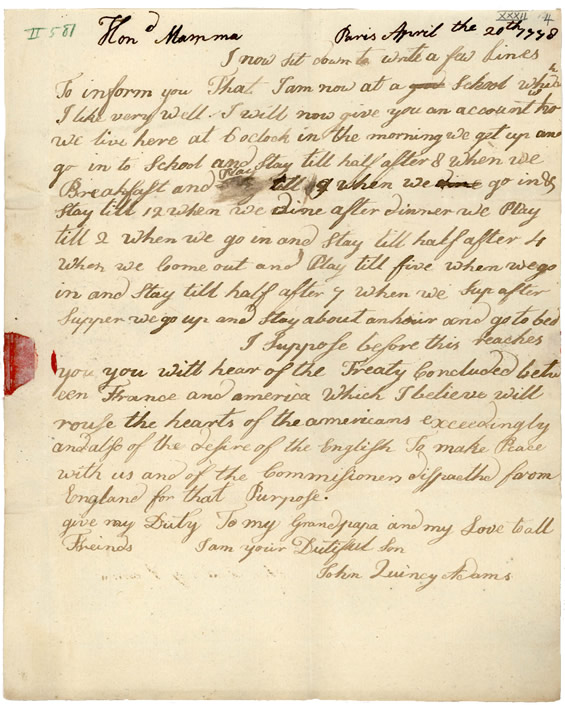 II 581
XXXII 4
Hond Mamma Paris April the 20th 1778
I now sit down to write a few lines
To inform you That I am now at a good School which
I like very well. I will now give you an account how
we live here at 6 oclock in the morning we get up and
go in to School and Stay till half after 8 when we
Breakfast and Play till 9 when we dine go in &
Stay till 12 when we dine after dinner we Play
till 2 when we go in and Stay till half after 4
when we Come out and Play till five when we go
in and Stay till half after 7 when we Sup after
Supper we go up and Stay about an hour and go to bed
I Suppose before this reaches
you you will hear of the Treaty Concluded betw
een France and america which I believe will
rouse the hearts of the americans exceedingly
and also of the desire of the English To make Peace
with us and of the Commisioners dispacthd from
England for that Purpose.
give my Duty To my Grandpapa and my Love to all
Freinds I am your Dutifull Son
John Quincy Adams